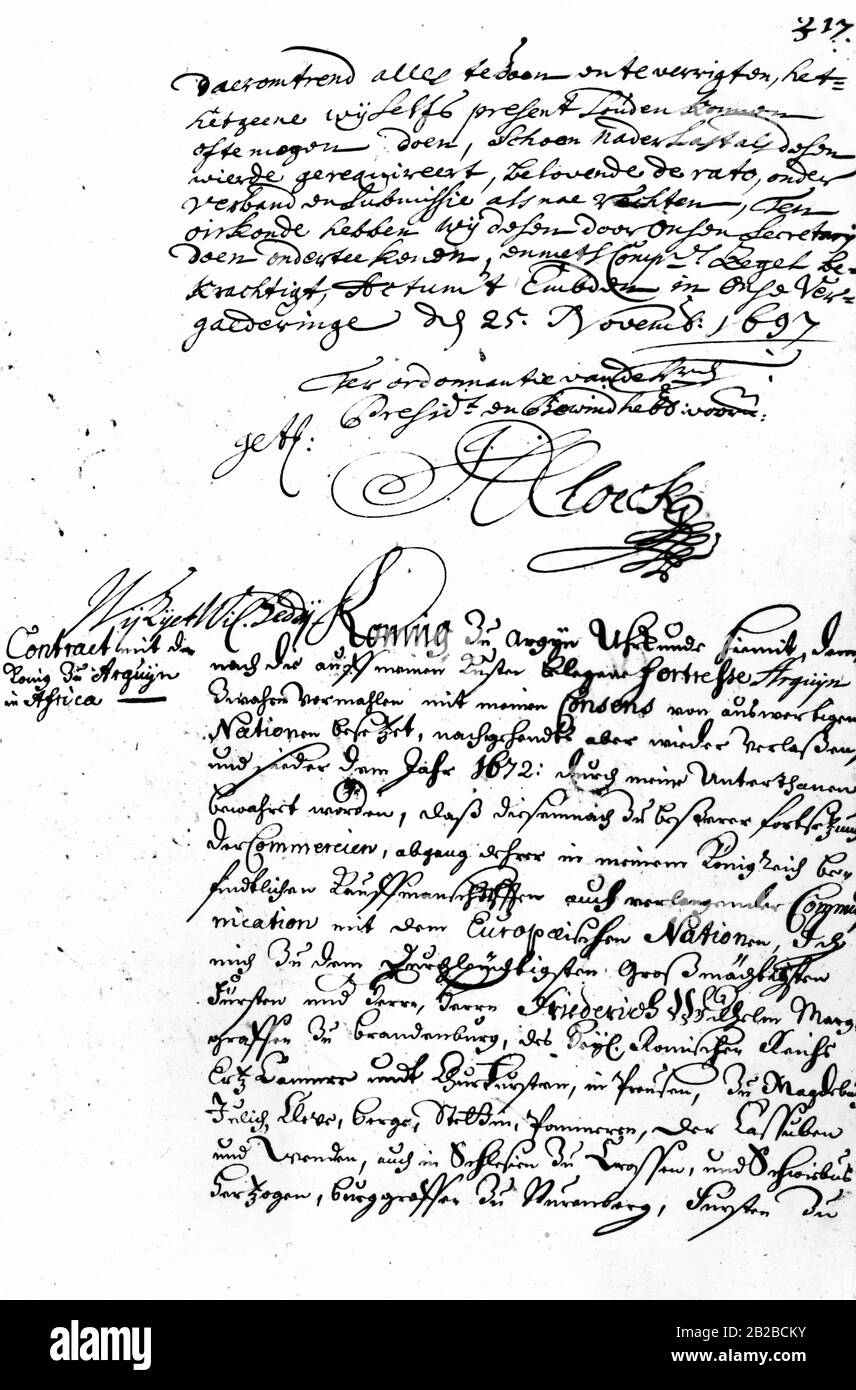 317.
daeromtrend alles te doen en te verrigten, het-
hetgeene wij selfs present souden konnen
ofte mogen doen, schoon nader last als desen
wierde gerequireert, belovende de rato, onder
verband en submissie als nae rechten, Ten
oirkonde hebben wij desen door onsen Secretary
doen onderteekenen, en met Comp.s Zegel be-
krachtigt, Actum Embden in onse Ver-
gaederinge d 25. Novemb: 1697
Ter ordonnantie van de
Presid.t en Bewindhebb: voorn:
get:
Klock
Wij Koning zu Argyn Uhrkunde hiemit, dem
Contract mit dem
König zu Arguyn
in Africa
nach die auff meinen Küsten belegene Fortresse Arguyn
zwahren vormahlen mit meinen Consens von auswertigen
Nationen besetzet, nachgehends aber wieder verlaßen,
und sieder dem Jahr 1672: durch meine Unterthanen
bewahret worden, daß diesemnach zu beßerer fortsetzung
der Commercien, abgang dehrer in meinem Königreich be-
findtlichen Kauffmanschafften auch verlangender Commu
nication mit dem Europæischen Nationen, Ich
mich zu dem Durchleuchtigsten Großmächtigsten
Fürsten und Herrn, Herrn Friederich Wilhelm Marg-
graffen zu Brandenburg, des Heyl. Römischen Reichs
Ertz Cammerer undt Churfürsten, in Preusen, zu Magdebu
Jülich, Cleve, Berge, Stettin, Pommeren, der Cassuben
und Wenden, auch in Schlesien zu Crossen, und Schwibus
Hertzogen, Burggraffen zu Nurenberg, Fürsten zu
alamy
Image ID: 2B2BCKY
www.alamy.com